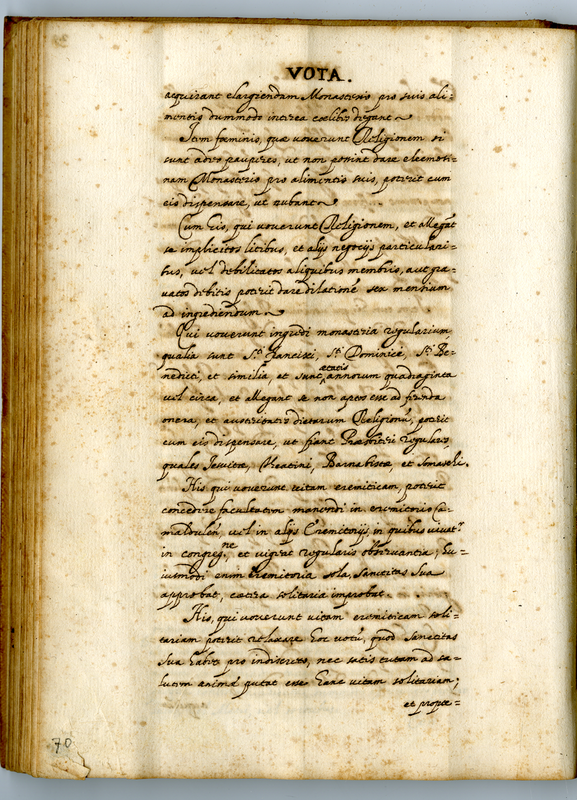 VOTA.
acquirant elargiendam Monasterio pro suis ali=
mentis dummodo interea coelibes degant
Item foeminis, quæ voverunt Religionem si
sunt adeo pauperes, ut non possint dare eleemosi=
nam Monasterio pro alimentis suis, poterit cum
eis dispensare, ut nubant
Cum his, qui voverunt Religionem, et allegāt
se implicitos litibus, et alijs negocijs particulari=
bus, vel debilitatos aliquibus membris, aut gra=
vatos debitis poterit dare dilationē sex mensium
ad ingrediendum
Qui voverunt ingredi monasteria regularium
qualia sunt Sti Francisci, Sti Dominici, Sti Be=
nedicti, et similia, et sunt ætatis annorum quadraginta
vel circa, et allegant se non aptos esse ad ferenda
onera, et austeritates dictarum Religionū, poterit
cum eis dispensare, ut fiant Præsbiteri regulares,
quales Iesuitæ, Theatini, Barnabistæ, et Smaschi.
His qui voverunt vitam eremiticam, poterit
concedere facultatem manendi in eremitorio Ca=
maldulen̄, vel in alijs Eremitorijs in quibus vivat.r
in congreg.ne, et vigeat regularis observantia, hu=
iusmodi enim eremitoria sola, Sanctitas Sua
approbat, cætera solitaria improbat.
His, qui voverunt vitam eremiticam soli=
tariam poterit relaxare hoc votū, quod Sanctitas
Sua habet pro indiscreto, nec satis tutam ad sa=
lutem animæ putat esse hanc vitam solitariam;
et propte=
70